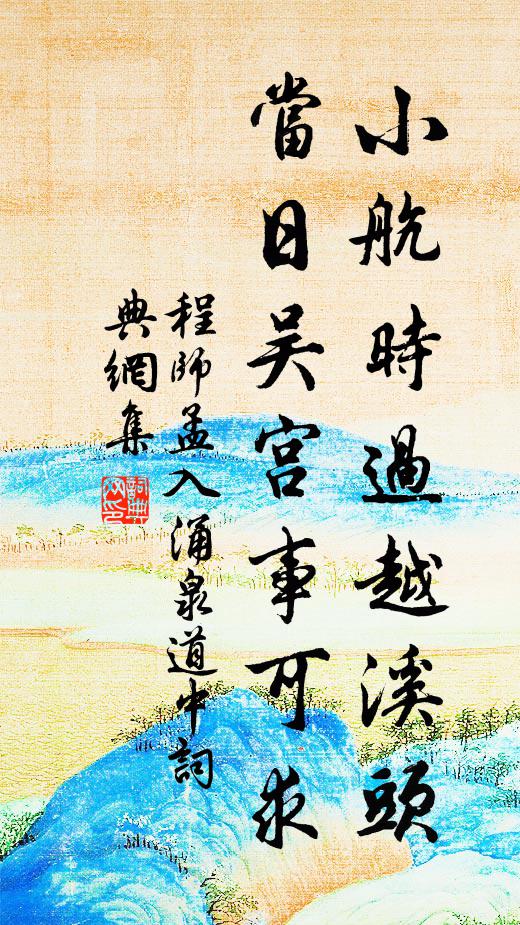 小航時過越溪頭
當日吳宮事可求
程師孟入涌泉道中詞
典網集